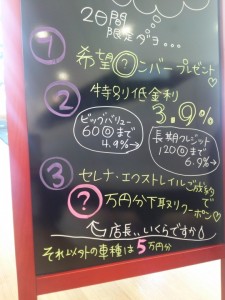 2日間
限定ダョ...
1 希望?ンバープレゼント♡
2 特別低金利
3.9%
ビッグバリュー
60回まで
4.9%→
長期クレジット
120回まで
6.9%→
3 セレナ・エクストレイルご成約で
? 万円分下取りクーポン♡
店長..いくらですか
それ以外の車種は5万円分